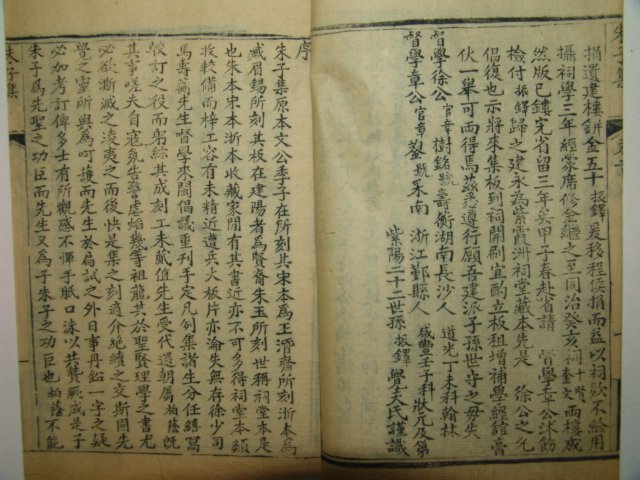 朱子集
捐遺建樓餅金五十振鐸爰移程侯捐而益以祠欵不給用
攝祠學三年經蒙席修金繼之至同治癸亥祠十賢奎文兩樓成
然版已鏤完省留三年矣甲子春赴省請 督學章公沐飭
檢付振鐸歸之建永為紫霞洲祠堂藏本先是 徐公之允
倡復也示將來集板到祠開刷宜酌立板租增補學經誼膏
伙一舉可兩得焉茲悉遵行願吾建派子孫世守之毋失
督學徐公官章樹銘號壽蘅湖南長沙人 道光丁未科翰林
督學章公官章鋆號采南 浙江鄞縣人 咸豐壬子科狀元及第
紫陽二十二世孫 振鐸 覺夫氏謹識
序
朱子集原本文公季子在所刻其宋本為王潛齋所刻浙本為
臧眉錫所刻其板在建陽者為賢裔朱玉所刻世稱祠堂本是
也朱本宋本浙本收藏家間有其書近亦不可多得祠堂本類
收較備而梓工容有未精近遭兵火板片亦淪失無存徐少司
馬壽蘅先生督學來閩倡議重刊手定凡例集諸生分任繕寫
皎訂之役而躬綜其成刻工未蕆值先生受代還朝屬柏蔭旣
其事嗟夫自寇氛生孽虐焰幾等祖龍共於聖賢理學之書尤
必欲澌滅之凌夷之而後快是集之刻適介絕續之交斯固先
覺之靈所與為呵護而先生於扃試之外日事丹鉛一字之疑
必加考訂俾多士有所觀感不憚手胝口沫以共贊厥成是子
朱子為先聖之功臣而先生又為子朱子之功臣也柏蔭不能
朱子集